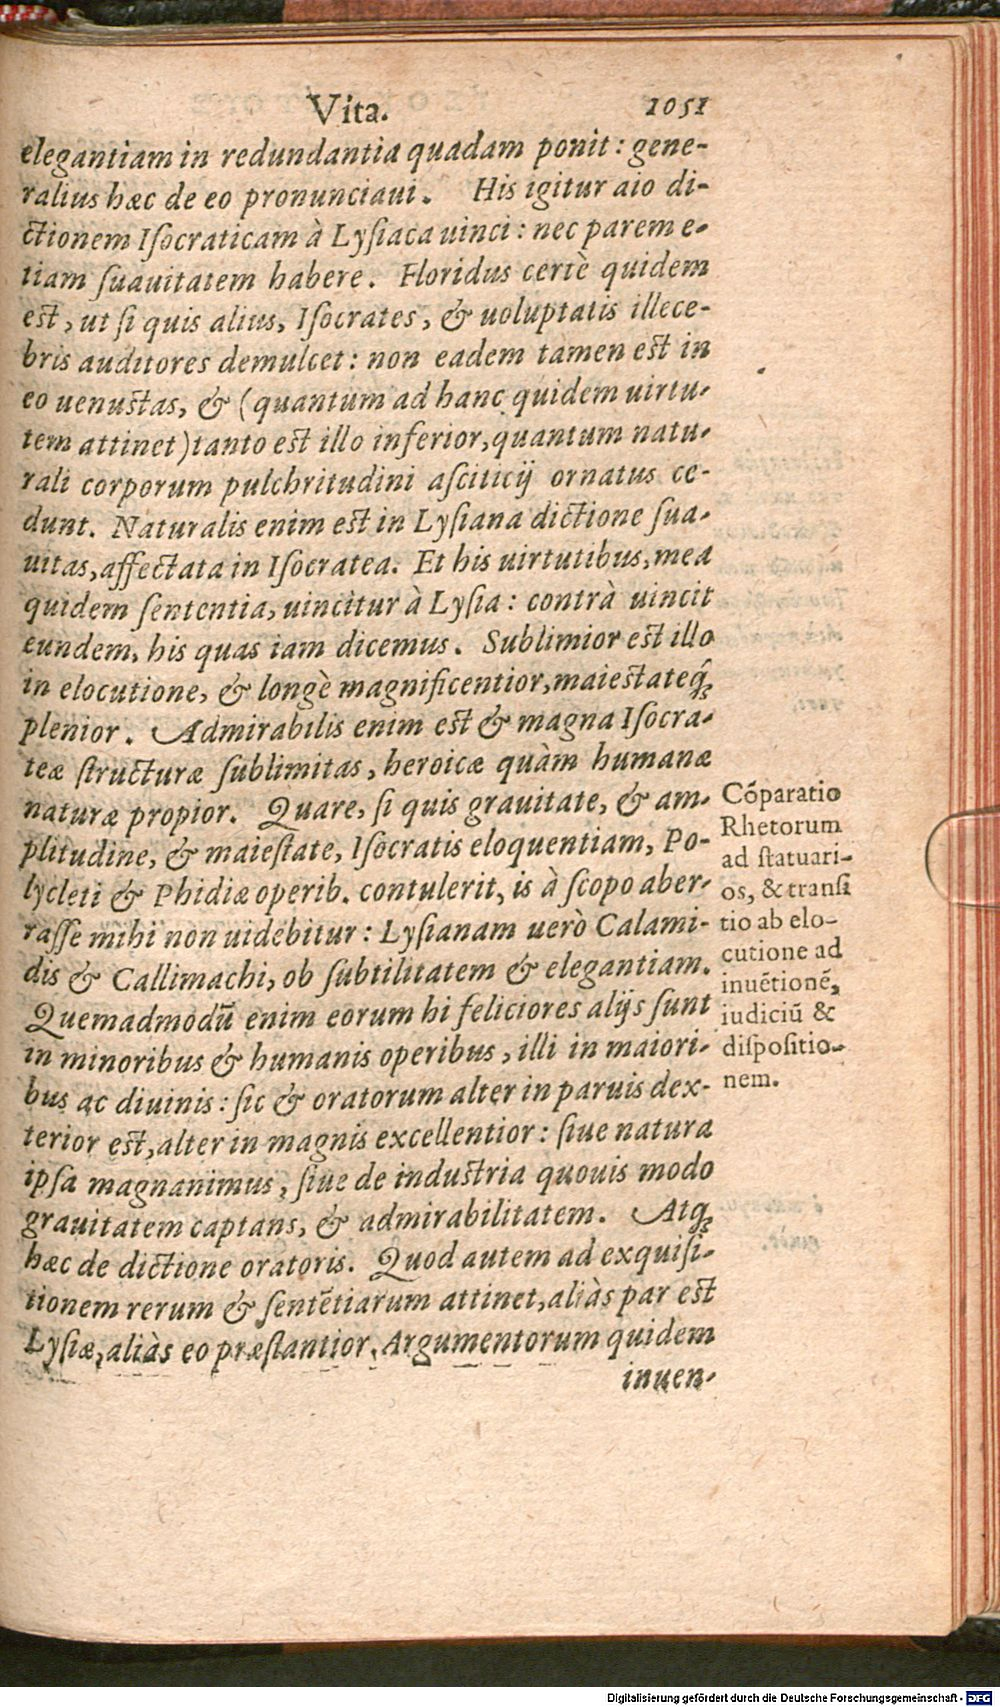 Vita. 1051
elegantiam in redundantia quadam ponit: gene-
ralius hæc de eo pronunciaui. His igitur aio di-
ctionem Iſocraticam à Lyſiaca uinci: nec parem e-
tiam ſuauitatem habere. Floridus certè quidem
est, ut ſi quis alius, Iſocrates, & uoluptatis illece-
bris auditores demulcet: non eadem tamen est in
eo uenustas, & (quantum ad hanc quidem uirtu-
tem attinet) tanto est illo inferior, quantum natu-
rali corporum pulchritudini aſciticij ornatus ce-
dunt. Naturalis enim est in Lyſiana dictione ſua-
uitas, affectata in Iſocratea. Et his uirtutibus, mea
quidem ſententia, uincitur à Lyſia: contrà uincit
eundem, his quas iam dicemus. Sublimior est illo
in elocutione, & longè magnificentior, maiestateq́;
plenior. Admirabilis enim est & magna Iſocra-
teæ structuræ ſublimitas, heroicæ quàm humanæ
naturæ propior. Quare, ſi quis grauitate, & am-
plitudine, & maieſtate, Iſocratis eloquentiam, Po-
lycleti & Phidiæ operib. contulerit, is à ſcopo aber-
raſſe mihi non uidebitur: Lyſianam uerò Calami-
dis & Callimachi, ob ſubtilitatem & elegantiam.
Quemadmodū enim eorum hi feliciores alijs ſunt
in minoribus & humanis operibus, illi in maiori-
bus ac diuinis: ſic & oratorum alter in paruis dex-
terior est, alter in magnis excellentior: ſiue natura
ipſa magnanimus, ſiue de industria quouis modo
grauitatem captans, & admirabilitatem. Atq;
hæc de dictione oratoris. Quod autem ad exquiſi-
tionem rerum & ſentētiarum attinet, aliàs par est
Lyſiæ, aliàs eo præſtantior. Argumentorum quidem
inuen-
Cōparatio
Rhetorum
ad ſtatuari-
os, & tranſi
tio ab elo-
cutione ad
inuētionē,
iudiciū &
diſpoſitio-
nem.
Digitalisierung gefördert durch die Deutsche Forschungsgemeinschaft - DFG